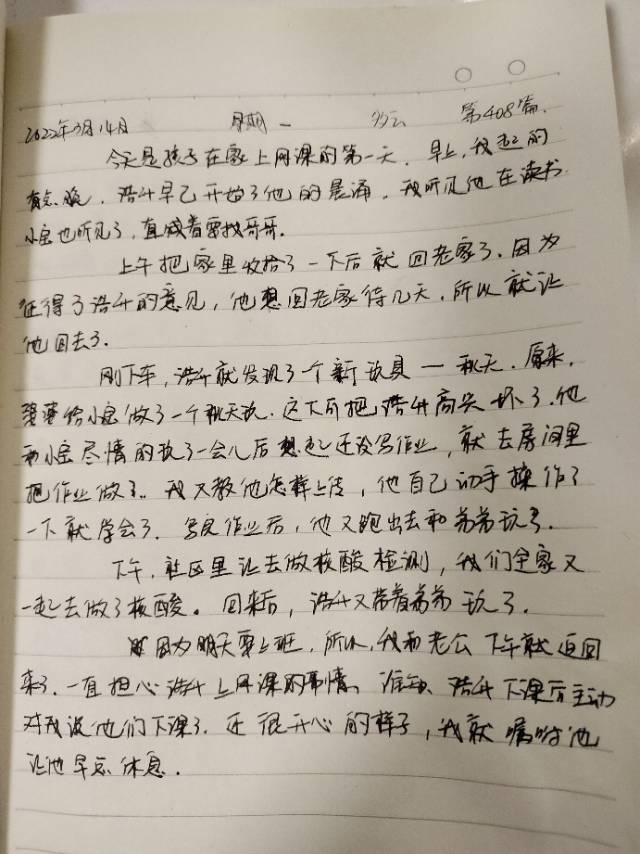 2022年3月14日 星期一 多云 第408篇.
今天是孩子在家上网课的第一天. 早上, 我起的
有点晚. 浩升早已开始了他的晨诵. 我听见他在读书
小宝也听见了, 直喊着要找哥哥.
上午把家里收拾了一下后就回老家了. 因为
征得了浩升的意见, 他想回老家待几天. 所以就让
他回去了.
刚下车, 浩升就发现了一个新玩具 — 秋天. 原来,
婆婆给小宝做了一个秋天玩. 这下可把浩升高兴坏了. 他
和小宝尽情的玩了一会儿后想起还没写作业, 就去房间里
把作业做了. 我又教他怎样上传, 他自己动手操作了
一下就学会了. 写完作业后, 他又跑出去和弟弟玩了.
下午, 社区里让去做核酸检测, 我们全家又
一起去做了核酸。回来后, 浩升又带着弟弟玩了.
因为明天要上班, 所以, 我和老公下午就返回
来了. 一直担心浩升上网课的事情, 谁知, 浩升下课后主动
对我说他们下课了. 还很开心的样子, 我就嘱咐他
让他早点休息.